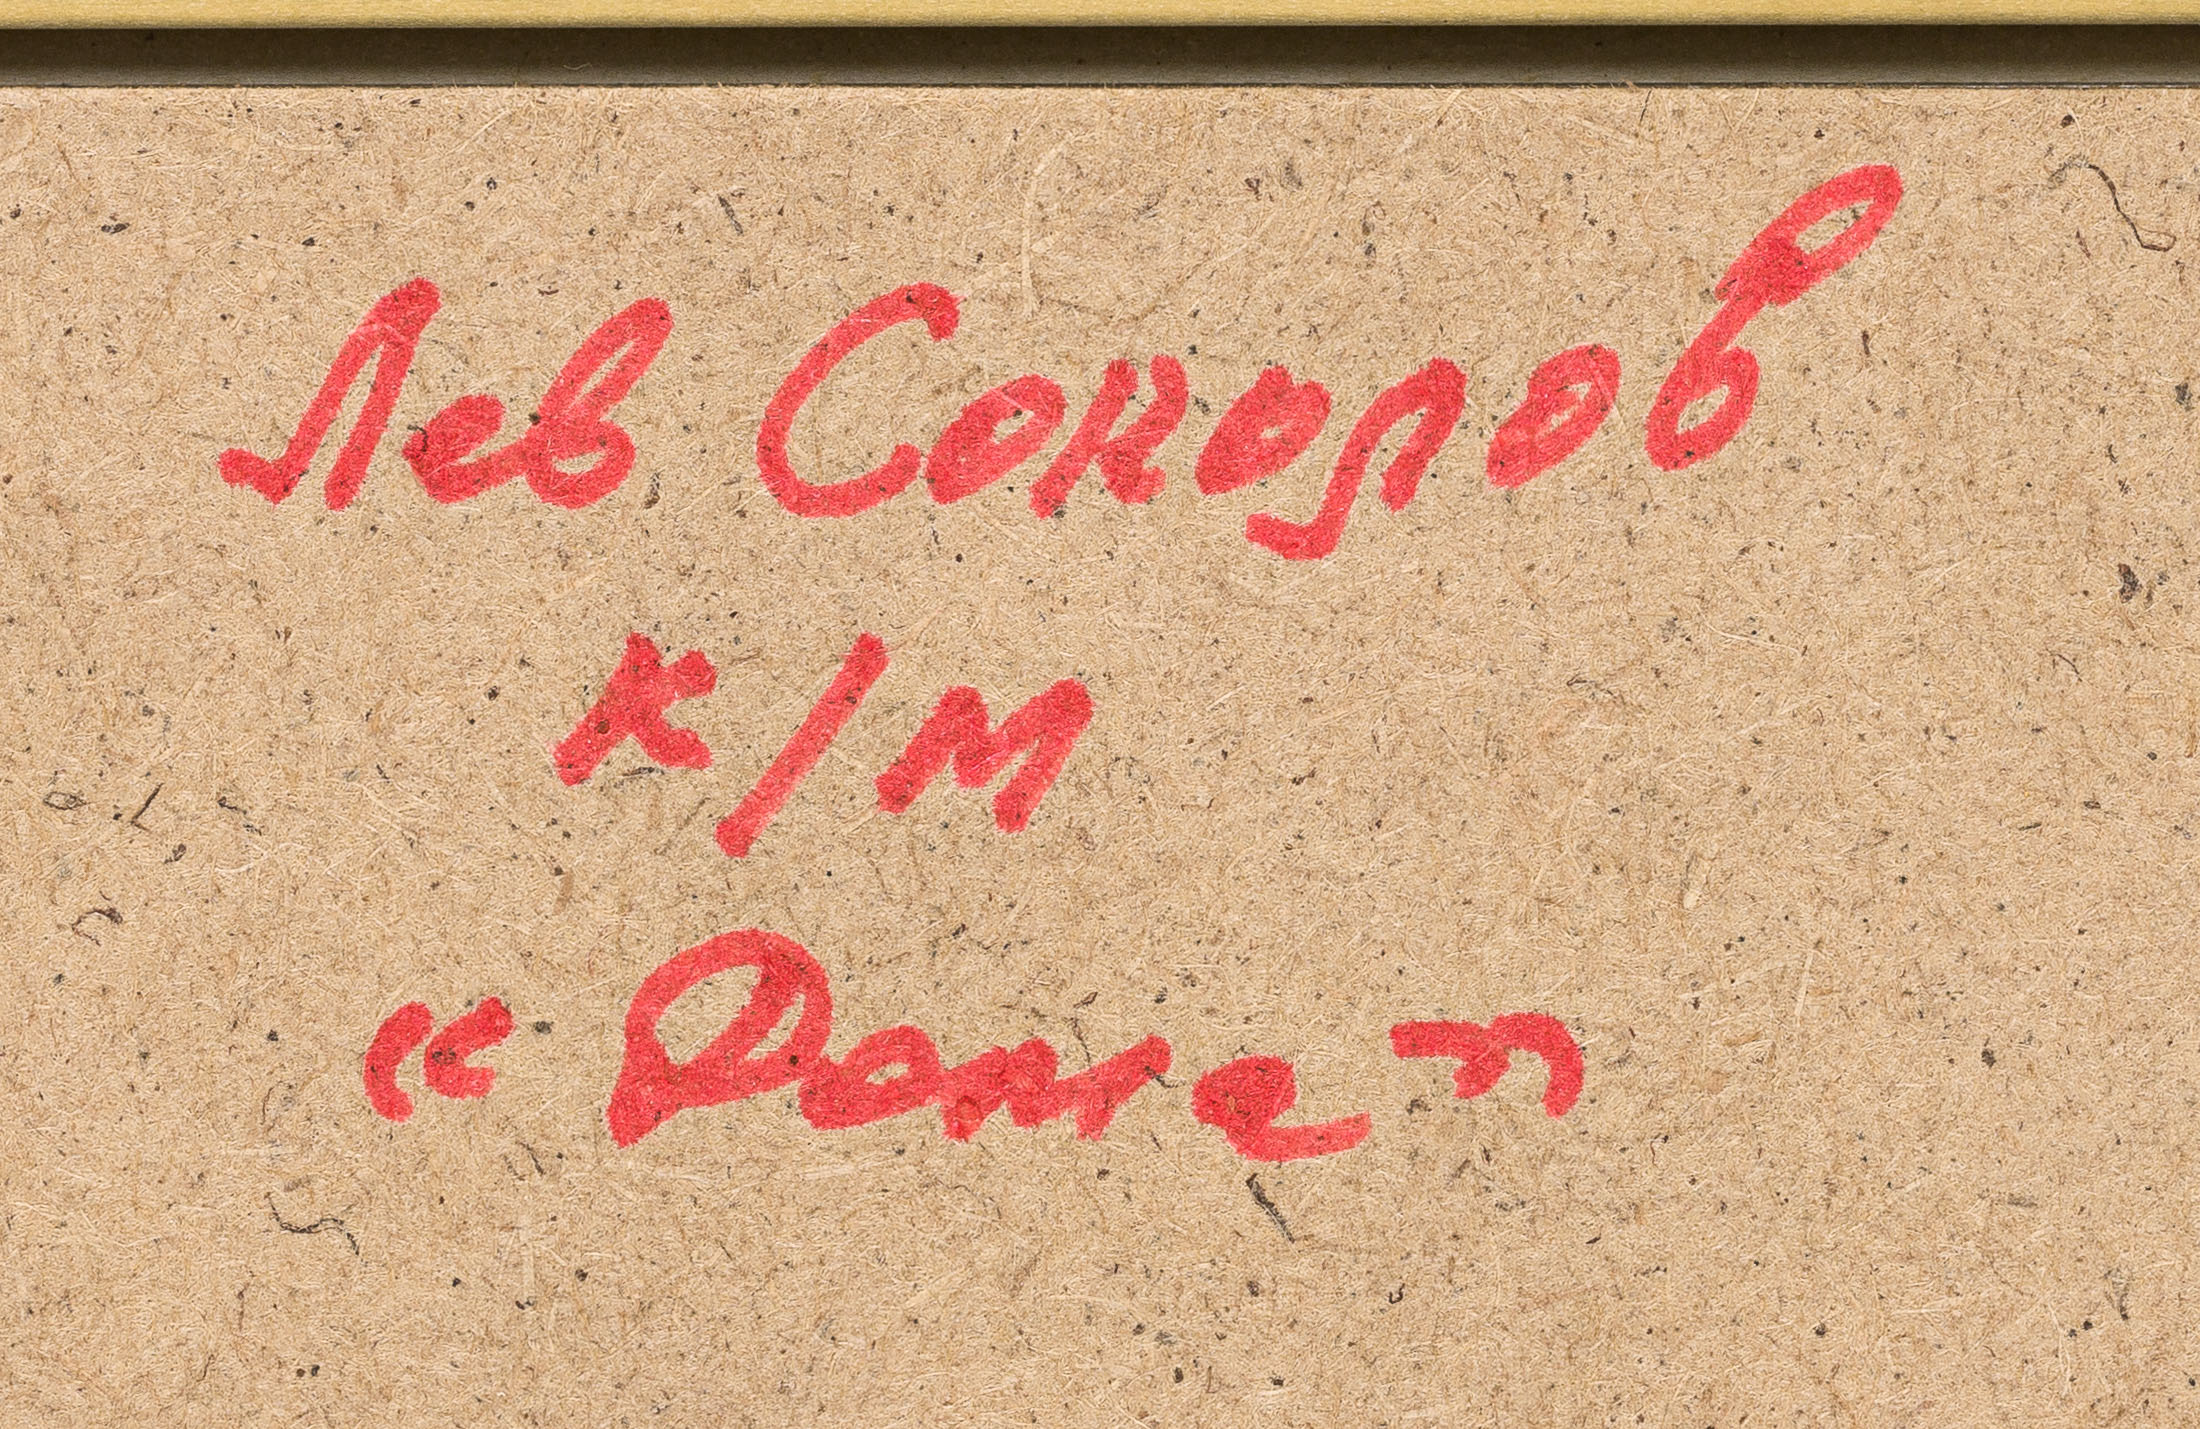 Лев Соколов
к/м
"Дома"